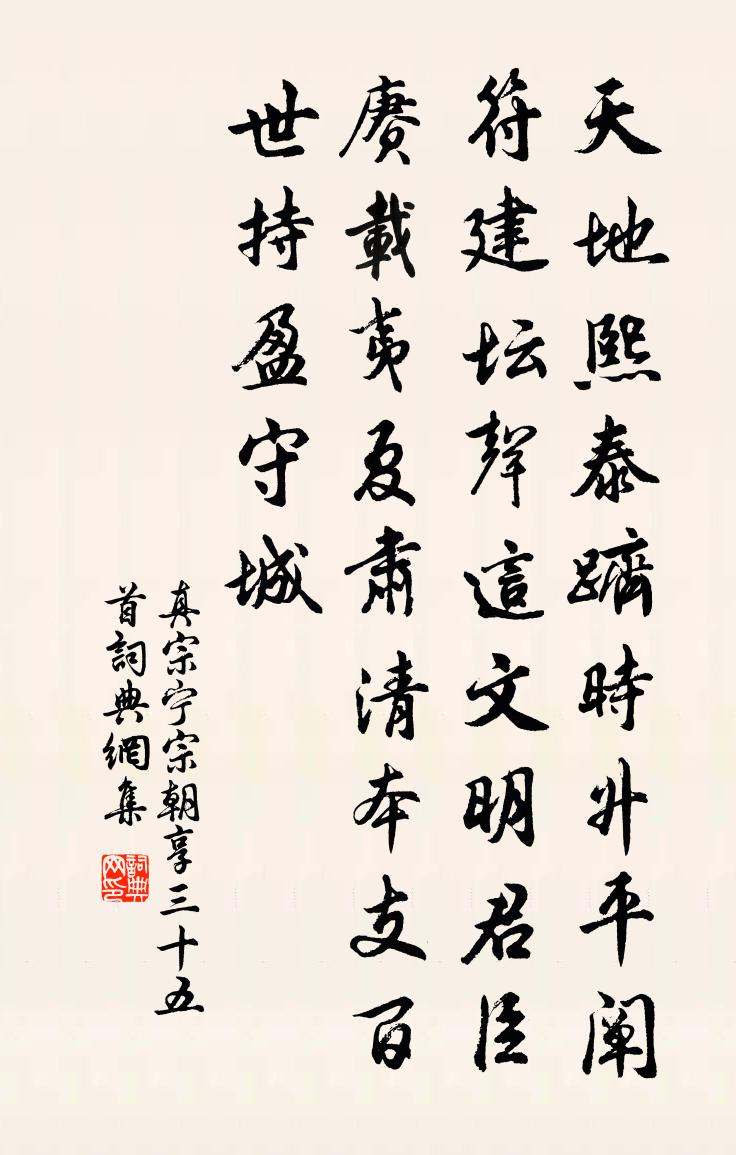 天地熙泰躋時升平闡
符建坛聲這文明君臣
賡載夷夏肅清本支百
世持盈守城
真宗宁宗朝享三十五
首詞典網集
詞典
网印